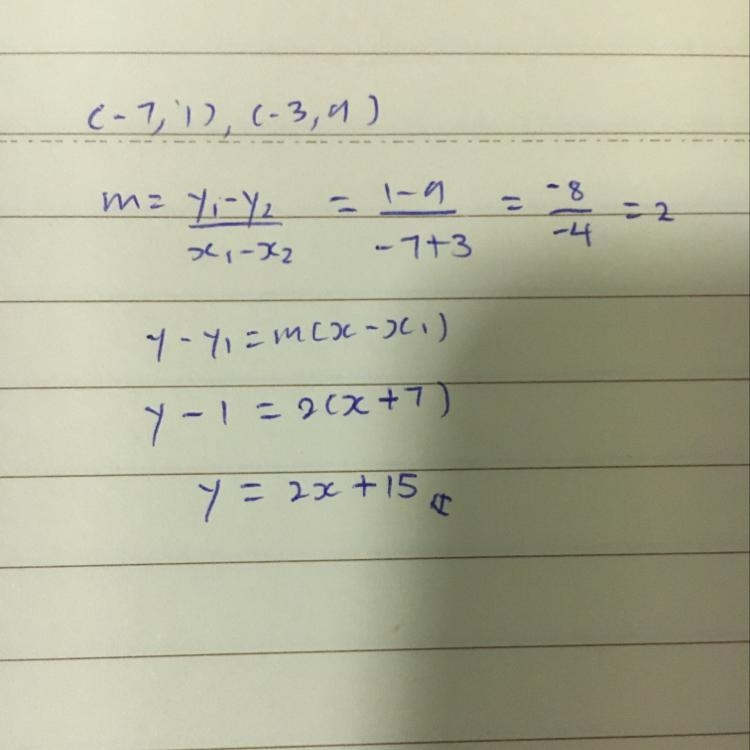 (-7, 1), (-3, 9)
m = y₁-y₂ / x₁-x₂ = 1-9 / -7+3 = -8 / -4 = 2
y - y₁ = m(x - x₁)
y - 1 = 2(x + 7)
y = 2x + 15